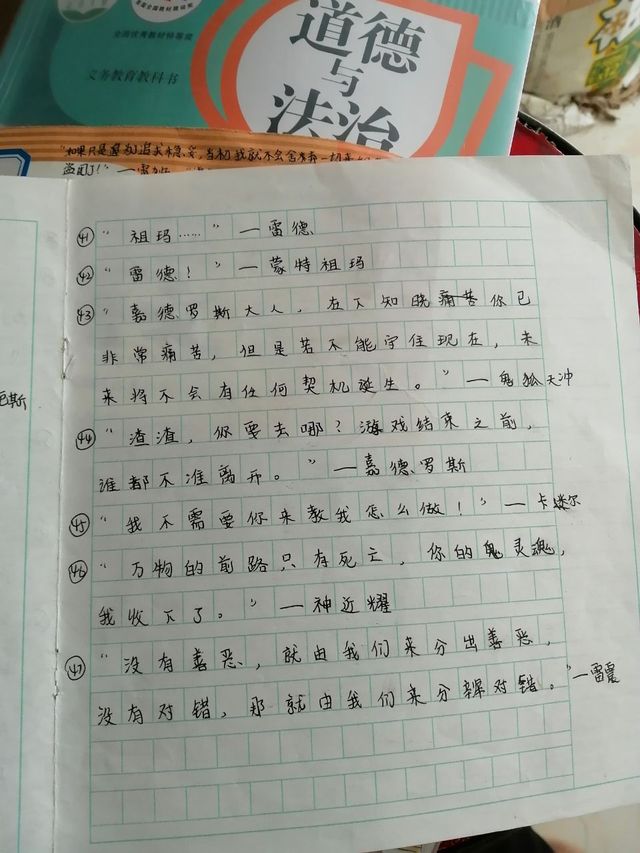 全国优秀教材特等奖
义务教育教科书
道德
与
法治
㊶“祖玛……”—雷德
㊷“雷德！”—蒙特祖玛
㊸“嘉德罗斯大人，在下知晓痛苦你已
非常痛苦，但是若不能守住现在，未
来将不会有任何契机诞生。”—鬼狐天冲
㊹“渣渣，你要去哪？游戏结束之前，
谁都不准离开。”—嘉德罗斯
㊺“我不需要你来教我怎么做！”—卡塔尔
㊻“万物的前路只有死亡，你的鬼灵魂，
我收下了。”—神近耀
㊼“没有善恶，就由我们来分出善恶，
没有对错，那就由我们来分辨对错。”—雷震